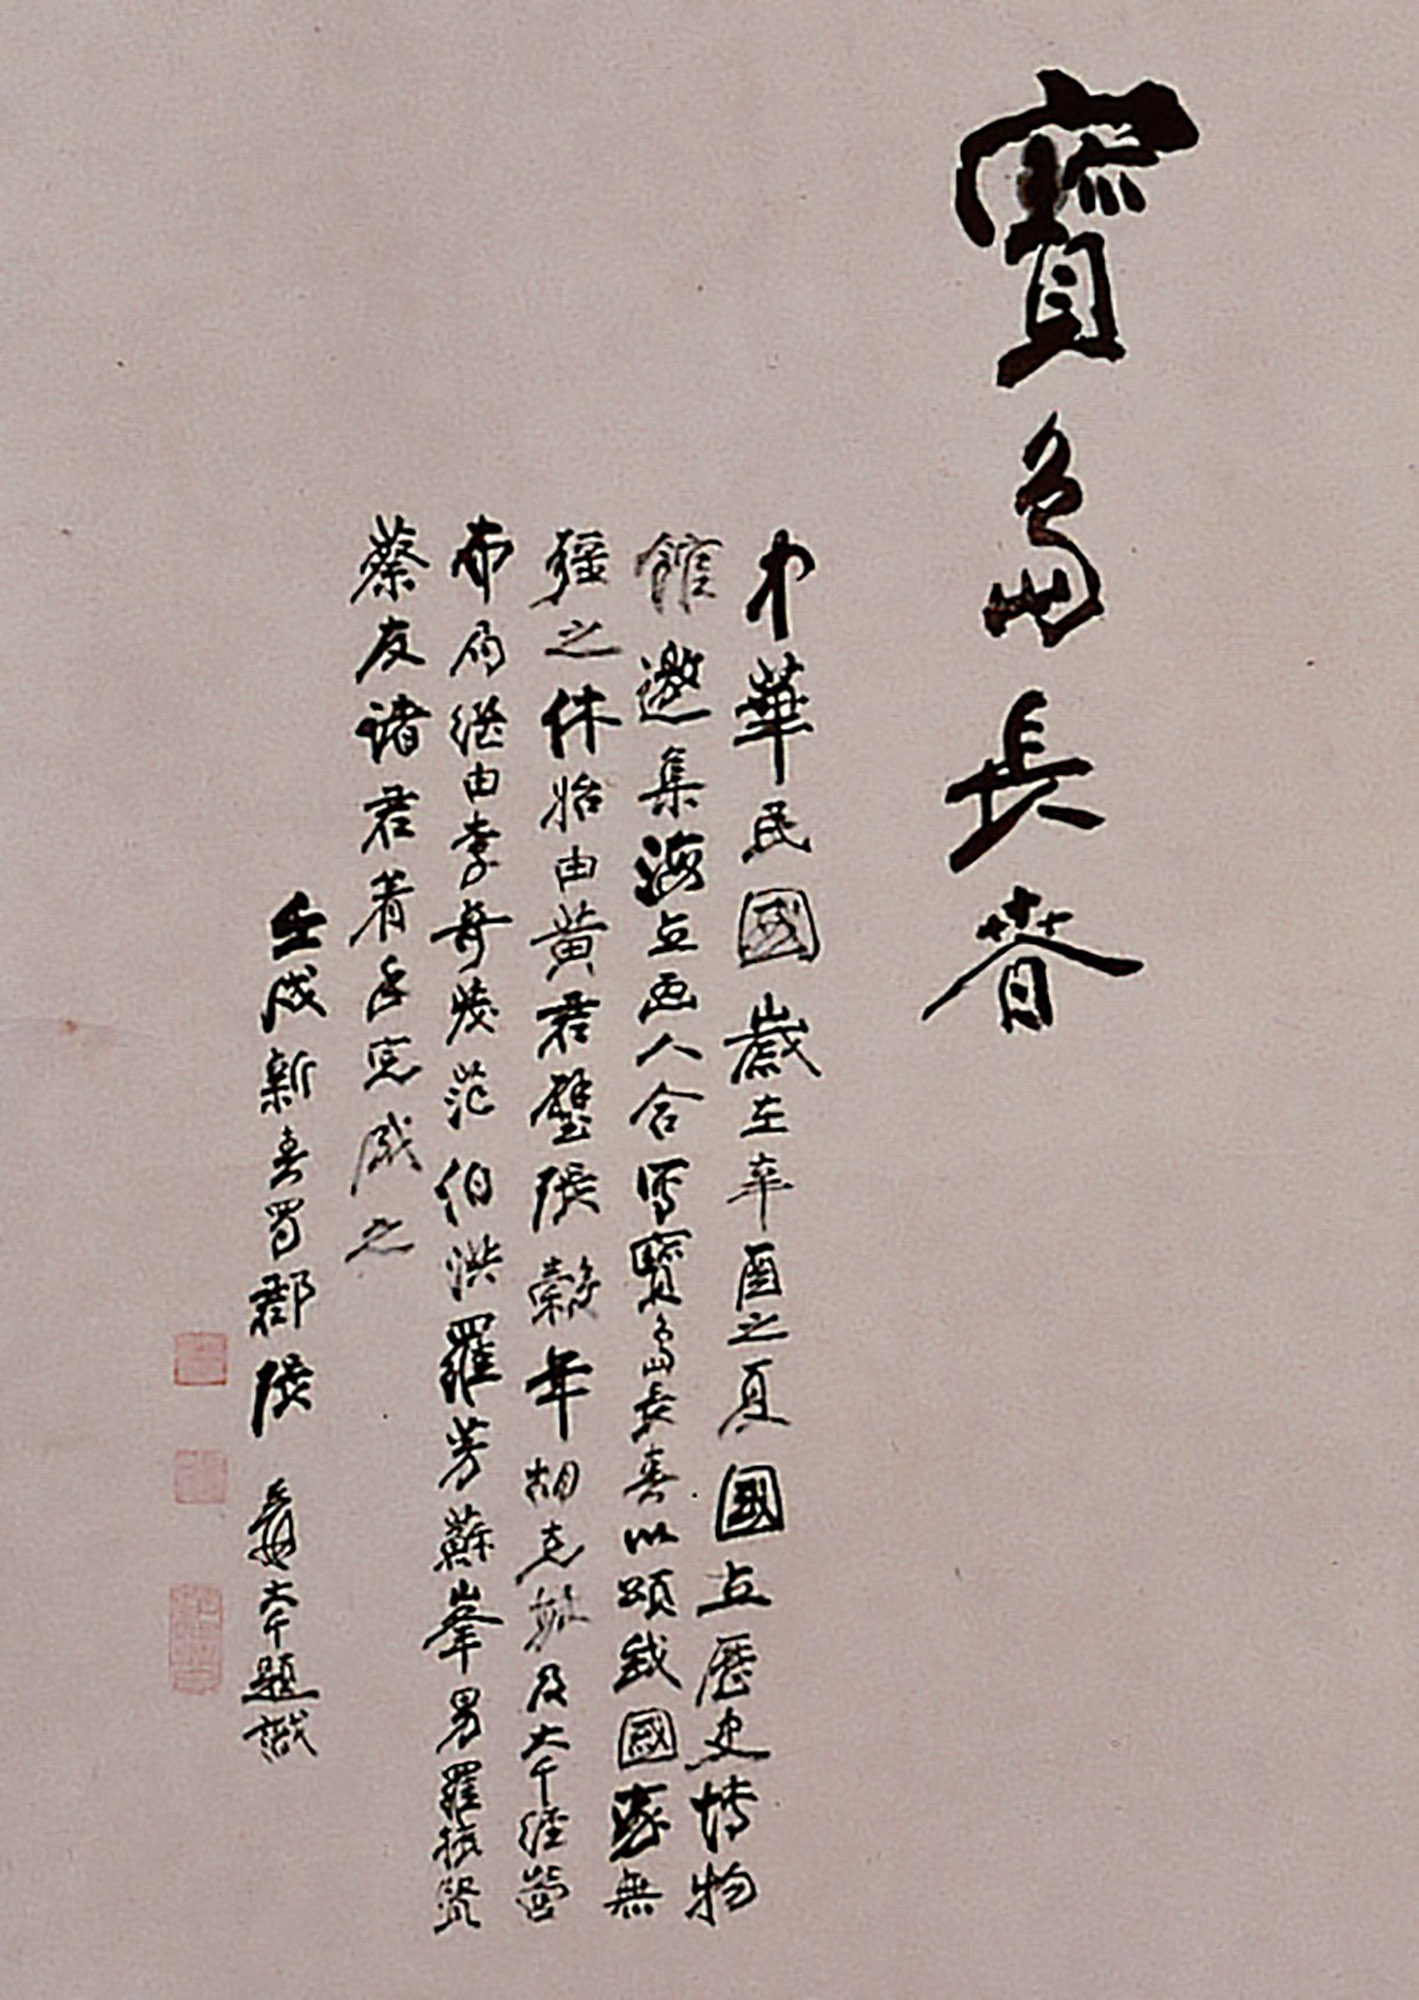 寶島長春
中華民國歲在辛酉之夏國立歷史博物
館邀集海上画人合寫寶島長春以頌我國家無
疆之休始由黃君璧張穀年胡克敏及大千經營
布局繼由李奇茂范伯洪羅芳蘇峯男羅振賢
蔡友諸君著手完成之
壬戌新春蜀郡張爰大千題識